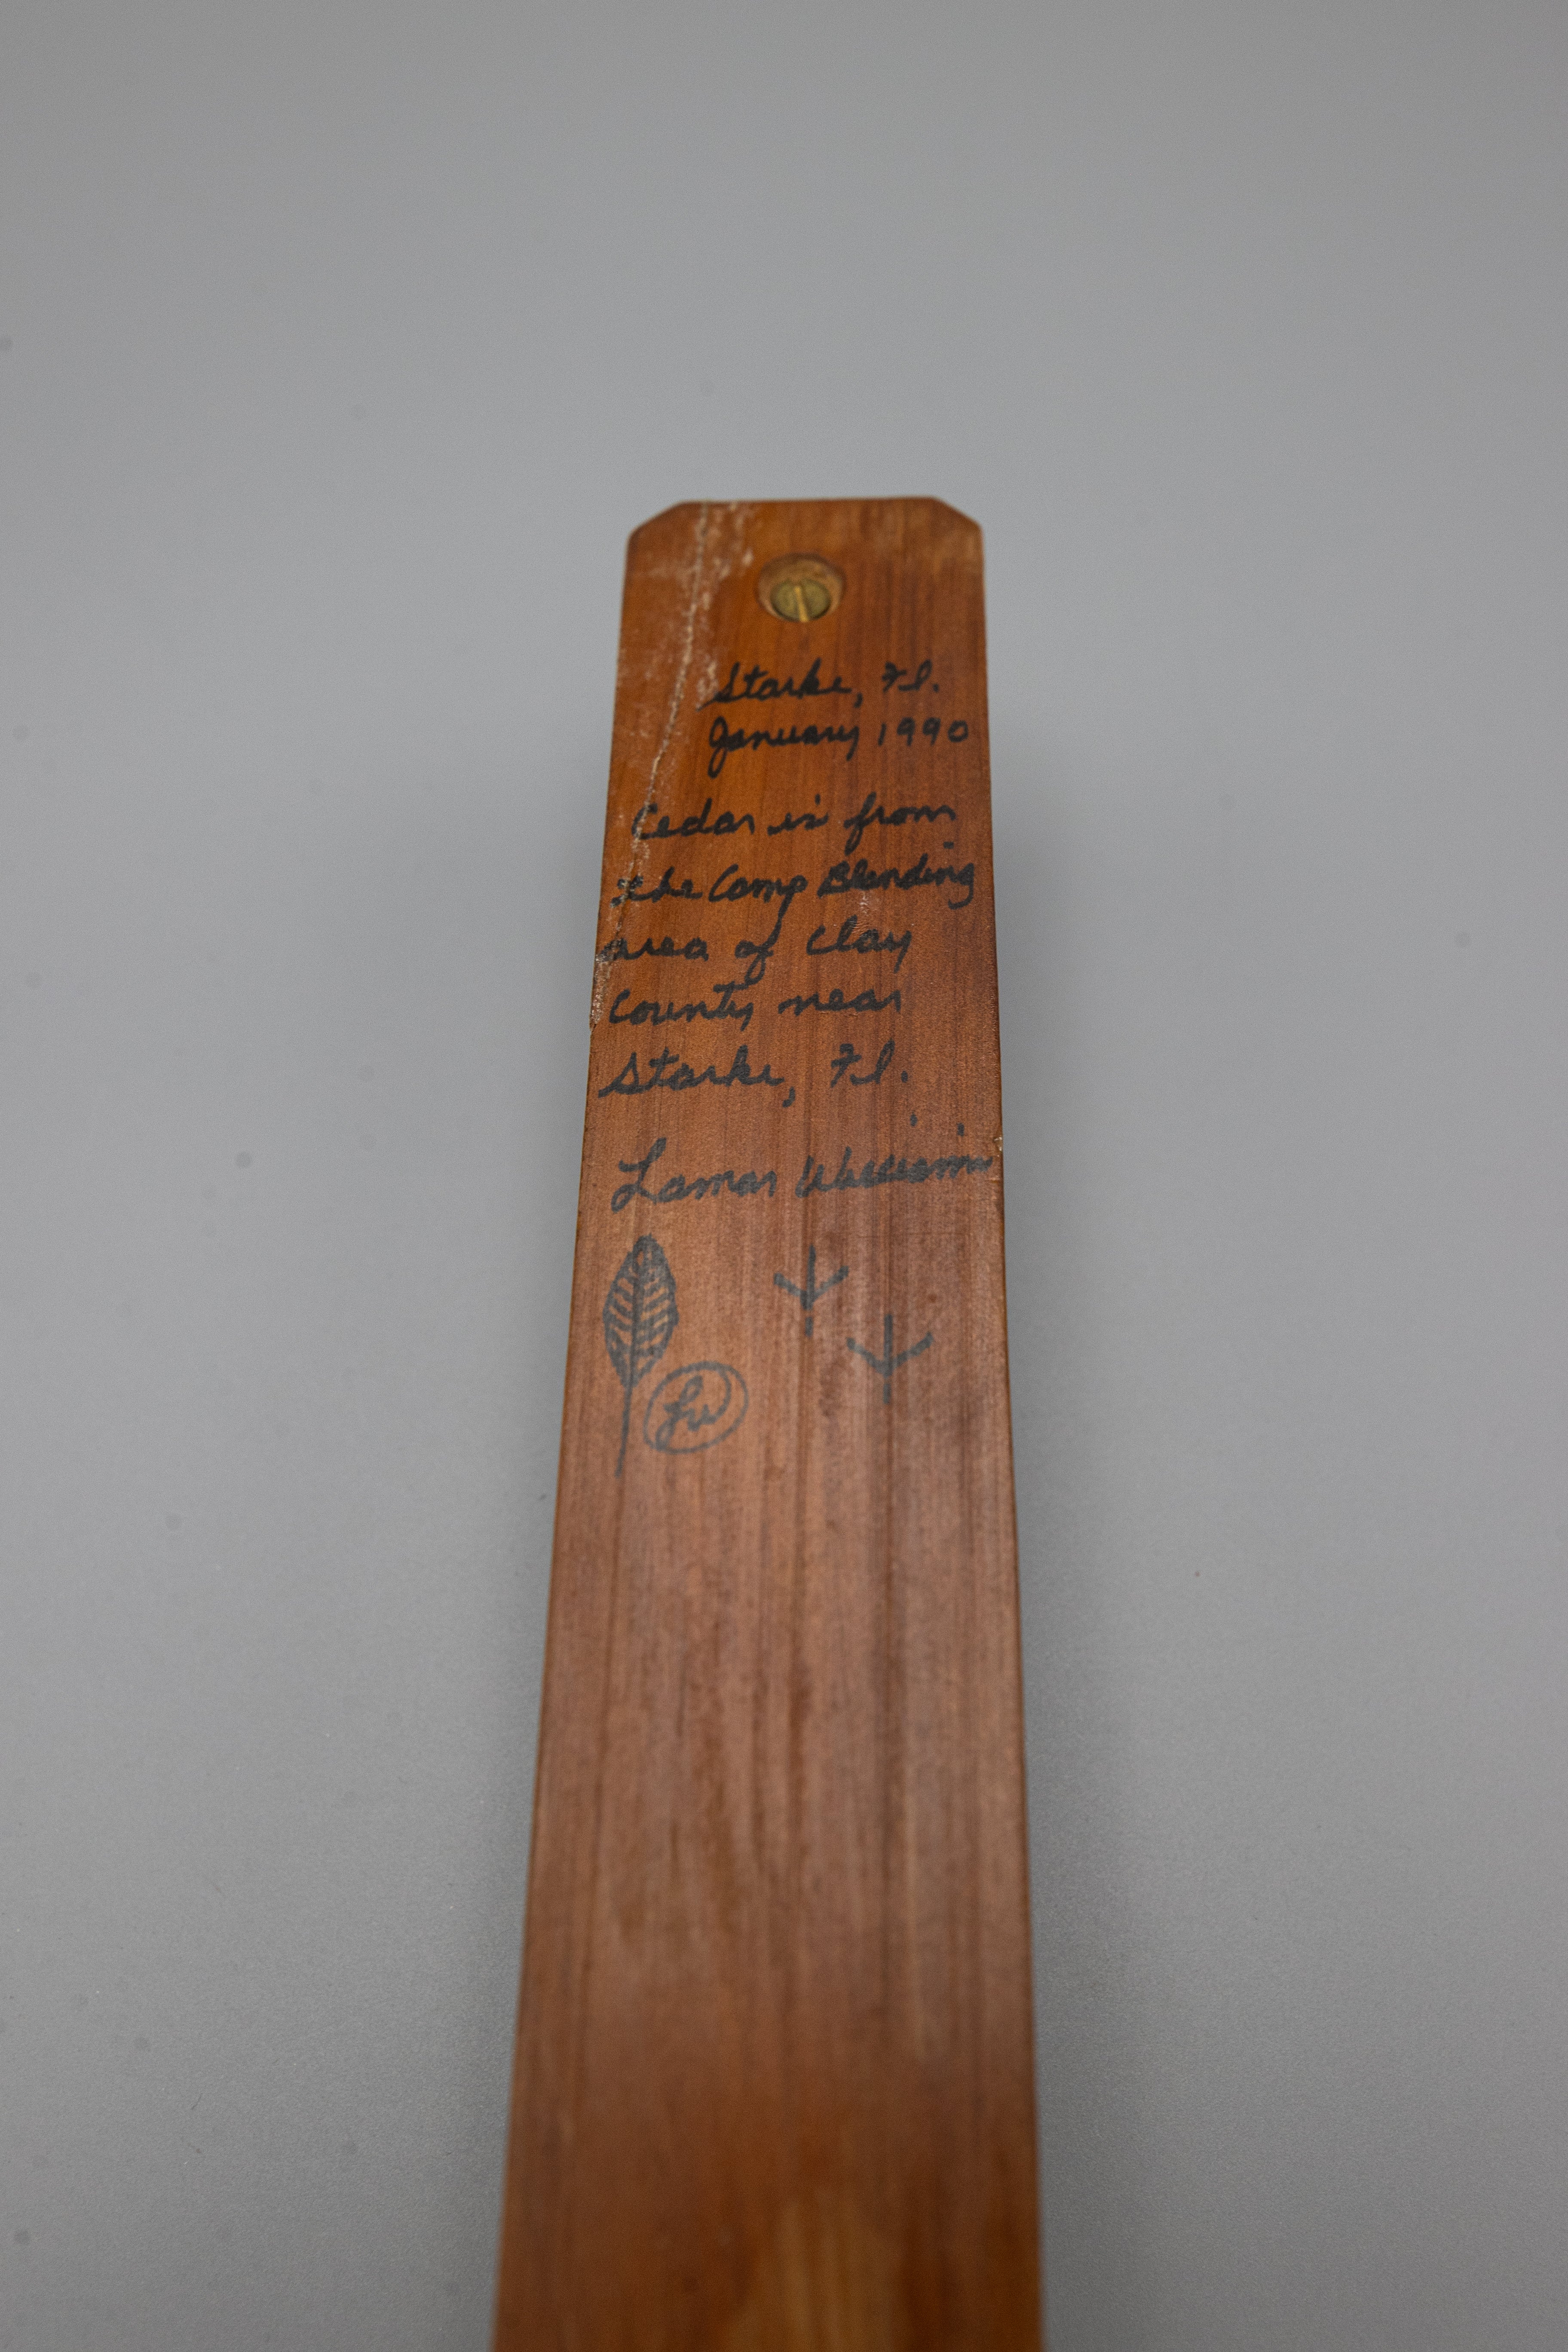 Starke, Fl.
January 1990
Cedar is from
the Camp Blanding
area of Clay
County near
Starke, Fl.
Lamar Williams
LW